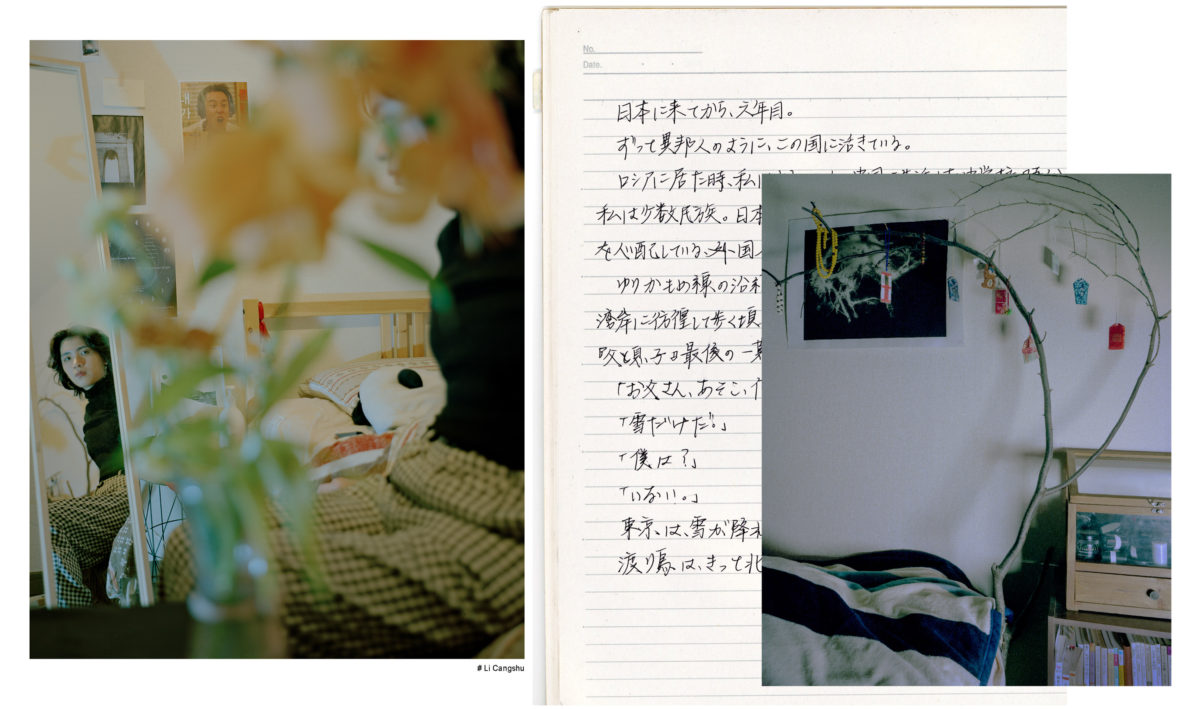 No.
Date.
日本に来てから、六年目。
ずっと異邦人のように、この国に活きている。
ロシアに居た時、私は
私は少数民族。日本
を心配している、外国
ゆりかもめ線の沿
湾岸に彷徨して歩く頃、
父と息子の最後の一
「お父さん、あそこ、
「雪だけだ。」
「僕は?」
「いない。」
東京は、雪が降
渡り鳥は、きっと北
# Li Cangshu